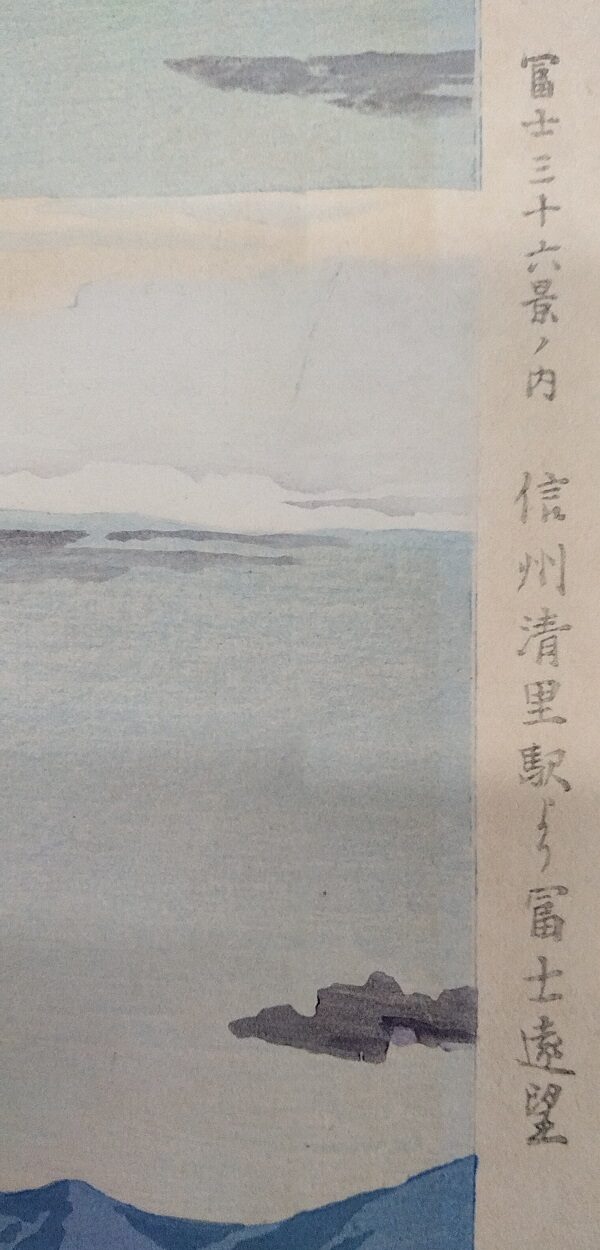 冨士三十六景ノ内　信州清里駅より冨士遠望